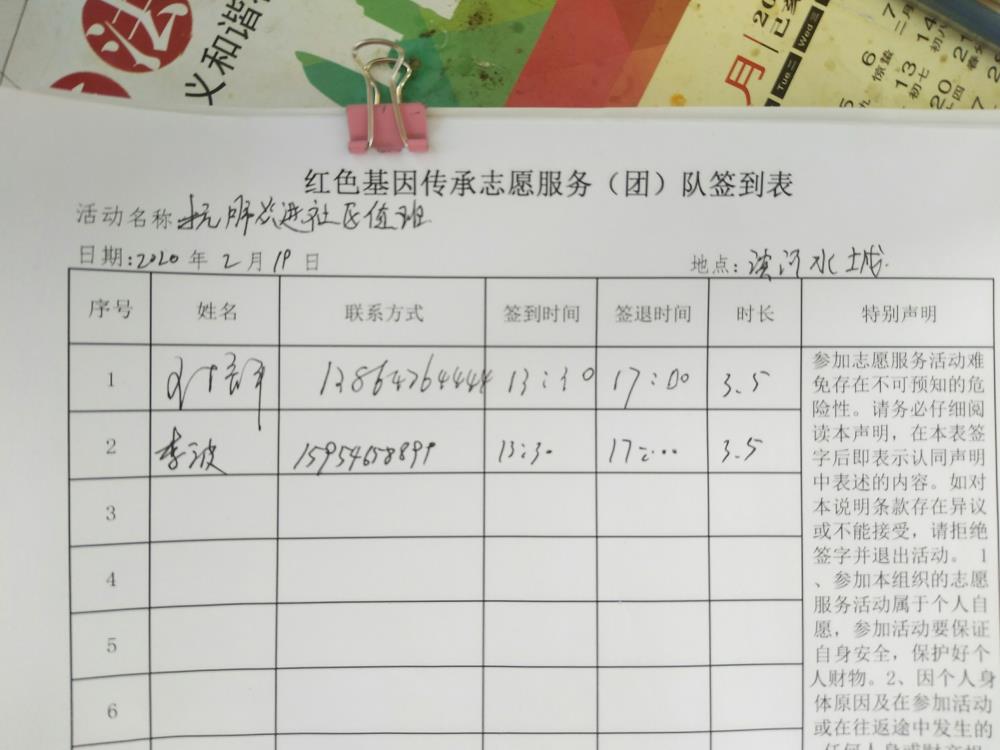 法
义和谐
月
20
己亥
Tue 二
Wed 三
6 惊蛰
13 初七
20 十四
7
14 初八
21
红色基因传承志愿服务（团）队签到表
活动名称 社区值班
日期:2020 年 2 月 19 日
地点: 滨河水城
序号 姓名 联系方式 签到时间 签退时间 时长 特别声明
1 13864264444 13:30 17:00 3.5
2 李波 15954658899 13:30 17:00 3.5
3
4
5
6
参加志愿服务活动难
免存在不可预知的危
险性。请务必仔细阅
读本声明，在本表签
字后即表示认同声明
中表述的内容。如对
本说明条款存在异议
或不能接受，请拒绝
签字并退出活动。 1
、参加本组织的志愿
服务活动属于个人自
愿，参加活动要保证
自身安全，保护好个
人财物。2、因个人身
体原因及在参加活动
或在往返途中发生的
任何人身或财产损